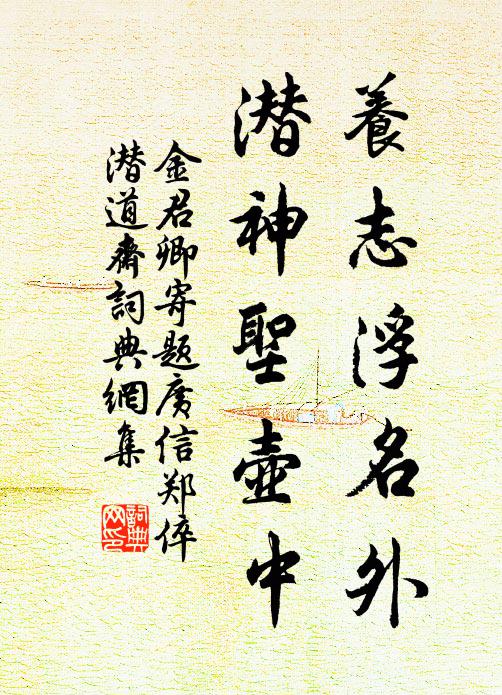 養志浮名外
潜神聖壺中
金君卿寄題廣信郑倅
潜道齋詞典網集
詞典
网印